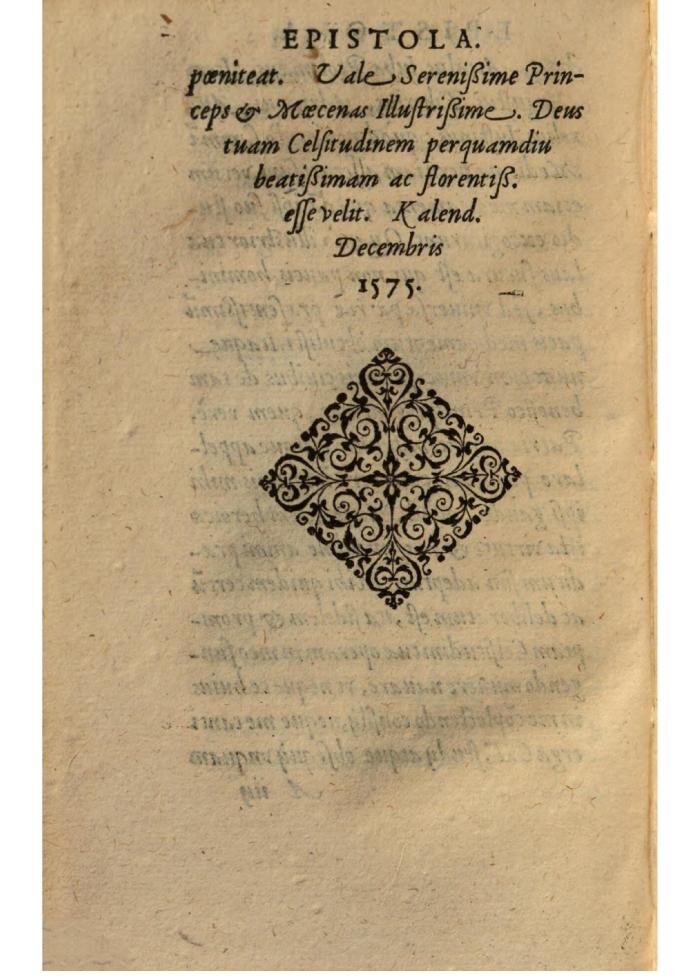 EPISTOLA.
pœniteat. Vale Serenißime Prin-
ceps & Mœcenas Illuſtrißime. Deus
tuam Celſitudinem perquamdiu
beatißimam ac florentiß.
eſſe velit. Kalend.
Decembris
1575.